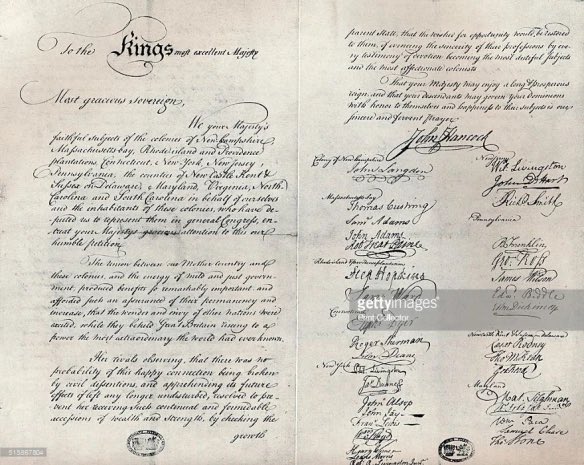 To the Kings most excellent Majesty
Most gracious sovereign,
We your Majesty's
faithful subjects of the colonies of New hampshire
Massachusetts bay, Rhode island and Providence
plantations, Connecticut, New-York, New Jersey
Pennsylvania, the counties of New Castle Kent &
Sussex on Delaware, Maryland, Virginia, North-
Carolina and South Carolina in behalf of ourselves
and the inhabitants of these colonies, who have de-
puted us to represent them in general Congress, en-
treat your Majestys gracious attention to this our
humble petition.
The union between our Mother Country and
these colonies, and the energy of mild and just govern-
ment, produced benefits so remarkably important, and
afforded such an assurance of their permanency and
increase, that the wonder and envy of other nations were
excited, while they beheld Great Britain rising to a
power the most extraordinary the world had ever known.
Her rivals observing, that there was no
probability of this happy connection being broken
by civil dissentions, and apprehending its future
effects if left any longer undisturbed, resolved to pre-
vent her receiving such continual and formidable
accessions of wealth and strength, by checking the
growth
parent State, that the wishes for opportunity would be restored
to them, of evincing the sincerity of their professions by eve-
ry testimony of devotion becoming the most dutiful subjects
and the most affectionate colonists.
That your Majesty may enjoy a long & prosperous
reign, and that your descendants may govern your dominions
with honor to themselves and happiness to their subjects is our
sincere and fervent prayer.
John Hancock
Colony of New hampshire
John Langdon
Massachusetts bay
Thomas Cushing
Saml Adams
John Adams
Robt Treat Paine
Step Hopkins
Sam: Ward
Elipht Dyer
Roger Sherman
Silas Deane
New York
Phil. Livingston
Jas Duane
John Alsop
John Jay
Frans Lewis
Wm Floyd
Lewis Morris
Robt R Livingston Junr
New Jersey
Wil: Livingston
John D Hart
Richd Smith
Pennsylvania
B Franklin
Geo: Ross
James Wilson
Edw. Biddle
New Castle Kent & Sussex on Delaware
Caesar Rodney
Tho M:Kean
Geo Read
Maryland
Mat. Tilghman
Wm Paca
Samuel Chase
Tho Stone
gettyimages
Print Collector
515867804